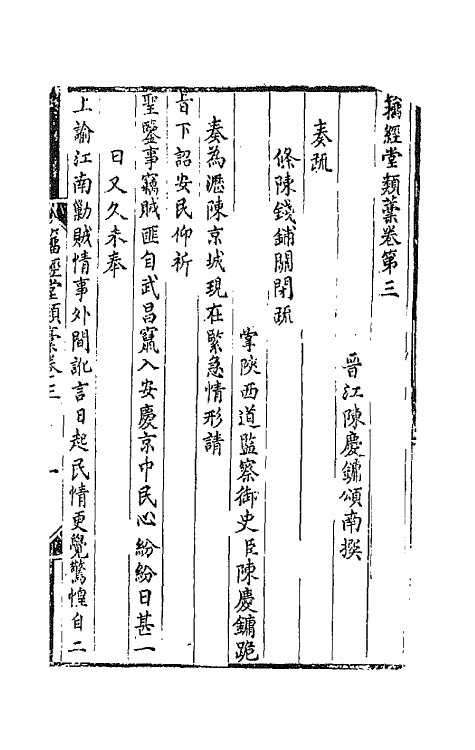 籀經堂類藁卷第三
晉江陳慶鏞頌南撰
奏疏
條陳錢鋪關閉疏
掌陝西道監察御史臣陳慶鏞跪
奏為瀝陳京城現在緊急情形請
旨下詔安民仰祈
聖鑒事竊賊匪自武昌竄入安慶京中民心紛紛日甚一
日又久未奉
上諭江南勦賊情事外間訛言日起民情更覺驚惶自二
籀經堂類藁卷三 一